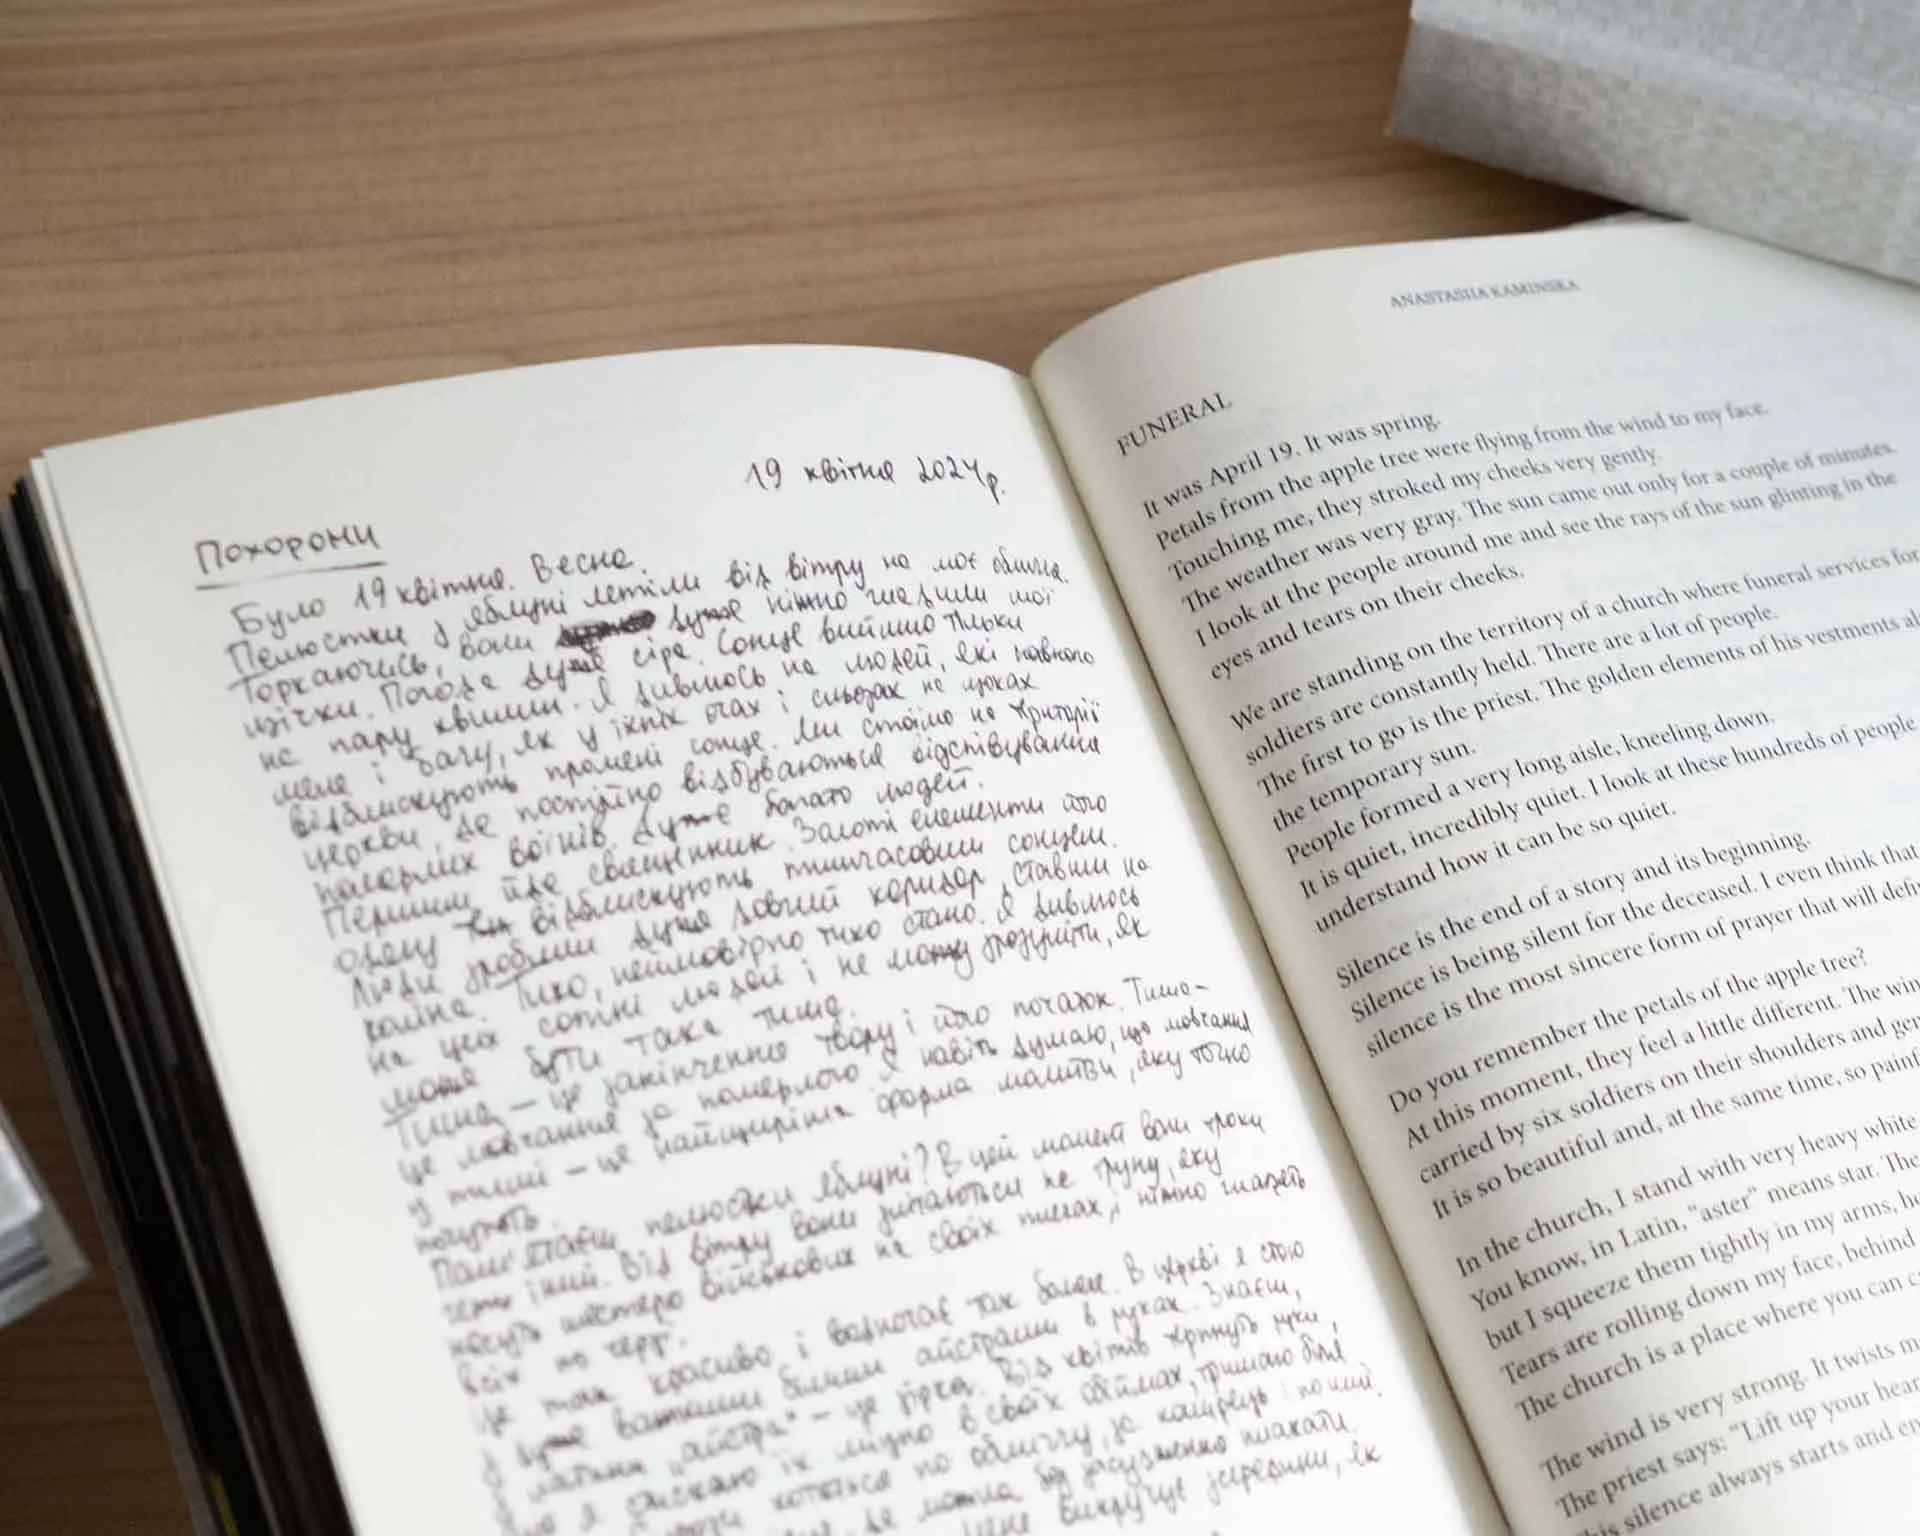 19 квітня 2024р.
Похорони
Було 19 квітня. Весна.
Пелюстки з яблуні летіли від вітру на моє обличчя.
Торкаючись, вони дуже ніжно гладили мої
щічки. Погода дуже сіра. Сонце вийшло тільки
на пару хвилин. Я дивлюсь на людей, які навколо
мене і бачу, як у їхніх очах і сльозах на щоках
відблискують промені сонця. Ми стоїмо на території
церкви, де постійно відбуваються відспівування
померлих воїнів. Дуже багато людей.
Першим йде священник. Золоті елементи його
одягу відблискують тимчасовим сонцем.
Люди зробили дуже довгий коридор, ставши на
коліна. Тихо, неймовірно тихо стало. Я дивлюсь
на цих сотні людей і не можу зрозуміти, як
може бути така тиша.
Тиша – це закінчення твору і його початок. Тиша –
це мовчання за померлого. Я навіть думаю, що мовчання
у тиші – це найщиріша форма молитви, яку точно
почують.
Пам'ятаєш пелюстки яблуні? В цей момент вони трохи
інші. Від вітру вони на труну, яку
несуть шестеро військових на своїх плечах, і ніжно гладять
всіх по черзі.
Це так красиво і водночас так боляче. В церкві я стою
з дуже важкими білими айстрами в руках. Знаєш,
латини „айстра" – це зірка. Від квітів терпнуть руки,
я стискаю їх міцно в своїх обіймах, тримаю біля
котяться по обличчю, за комірець і по шиї.
де можна без плакати.
викручує зсередини, як
ANASTASIIA KAMINSKA
FUNERAL
It was April 19. It was spring.
Petals from the apple tree were flying from the wind to my face.
Touching me, they stroked my cheeks very gently.
The weather was very gray. The sun came out only for a couple of minutes.
I look at the people around me and see the rays of the sun glinting in the
eyes and tears on their cheeks.
We are standing on the territory of a church where funeral services for
soldiers are constantly held. There are a lot of people.
The first to go is the priest. The golden elements of his vestments
the temporary sun.
People formed a very long aisle, kneeling down.
It is quiet, incredibly quiet. I look at these hundreds of people
understand how it can be so quiet.
Silence is the end of a story and its beginning.
Silence is being silent for the deceased. I even think that
silence is the most sincere form of prayer that will
Do you remember the petals of the apple tree?
At this moment, they feel a little different. The
carried by six soldiers on their shoulders and
It is so beautiful and, at the same time, so
In the church, I stand with very heavy white
You know, in Latin, “aster” means star. The
but I squeeze them tightly in my arms,
Tears are rolling down my face, behind
The church is a place where you can
The wind is very strong. It twists
The priest says: “Lift up your
This silence always starts and